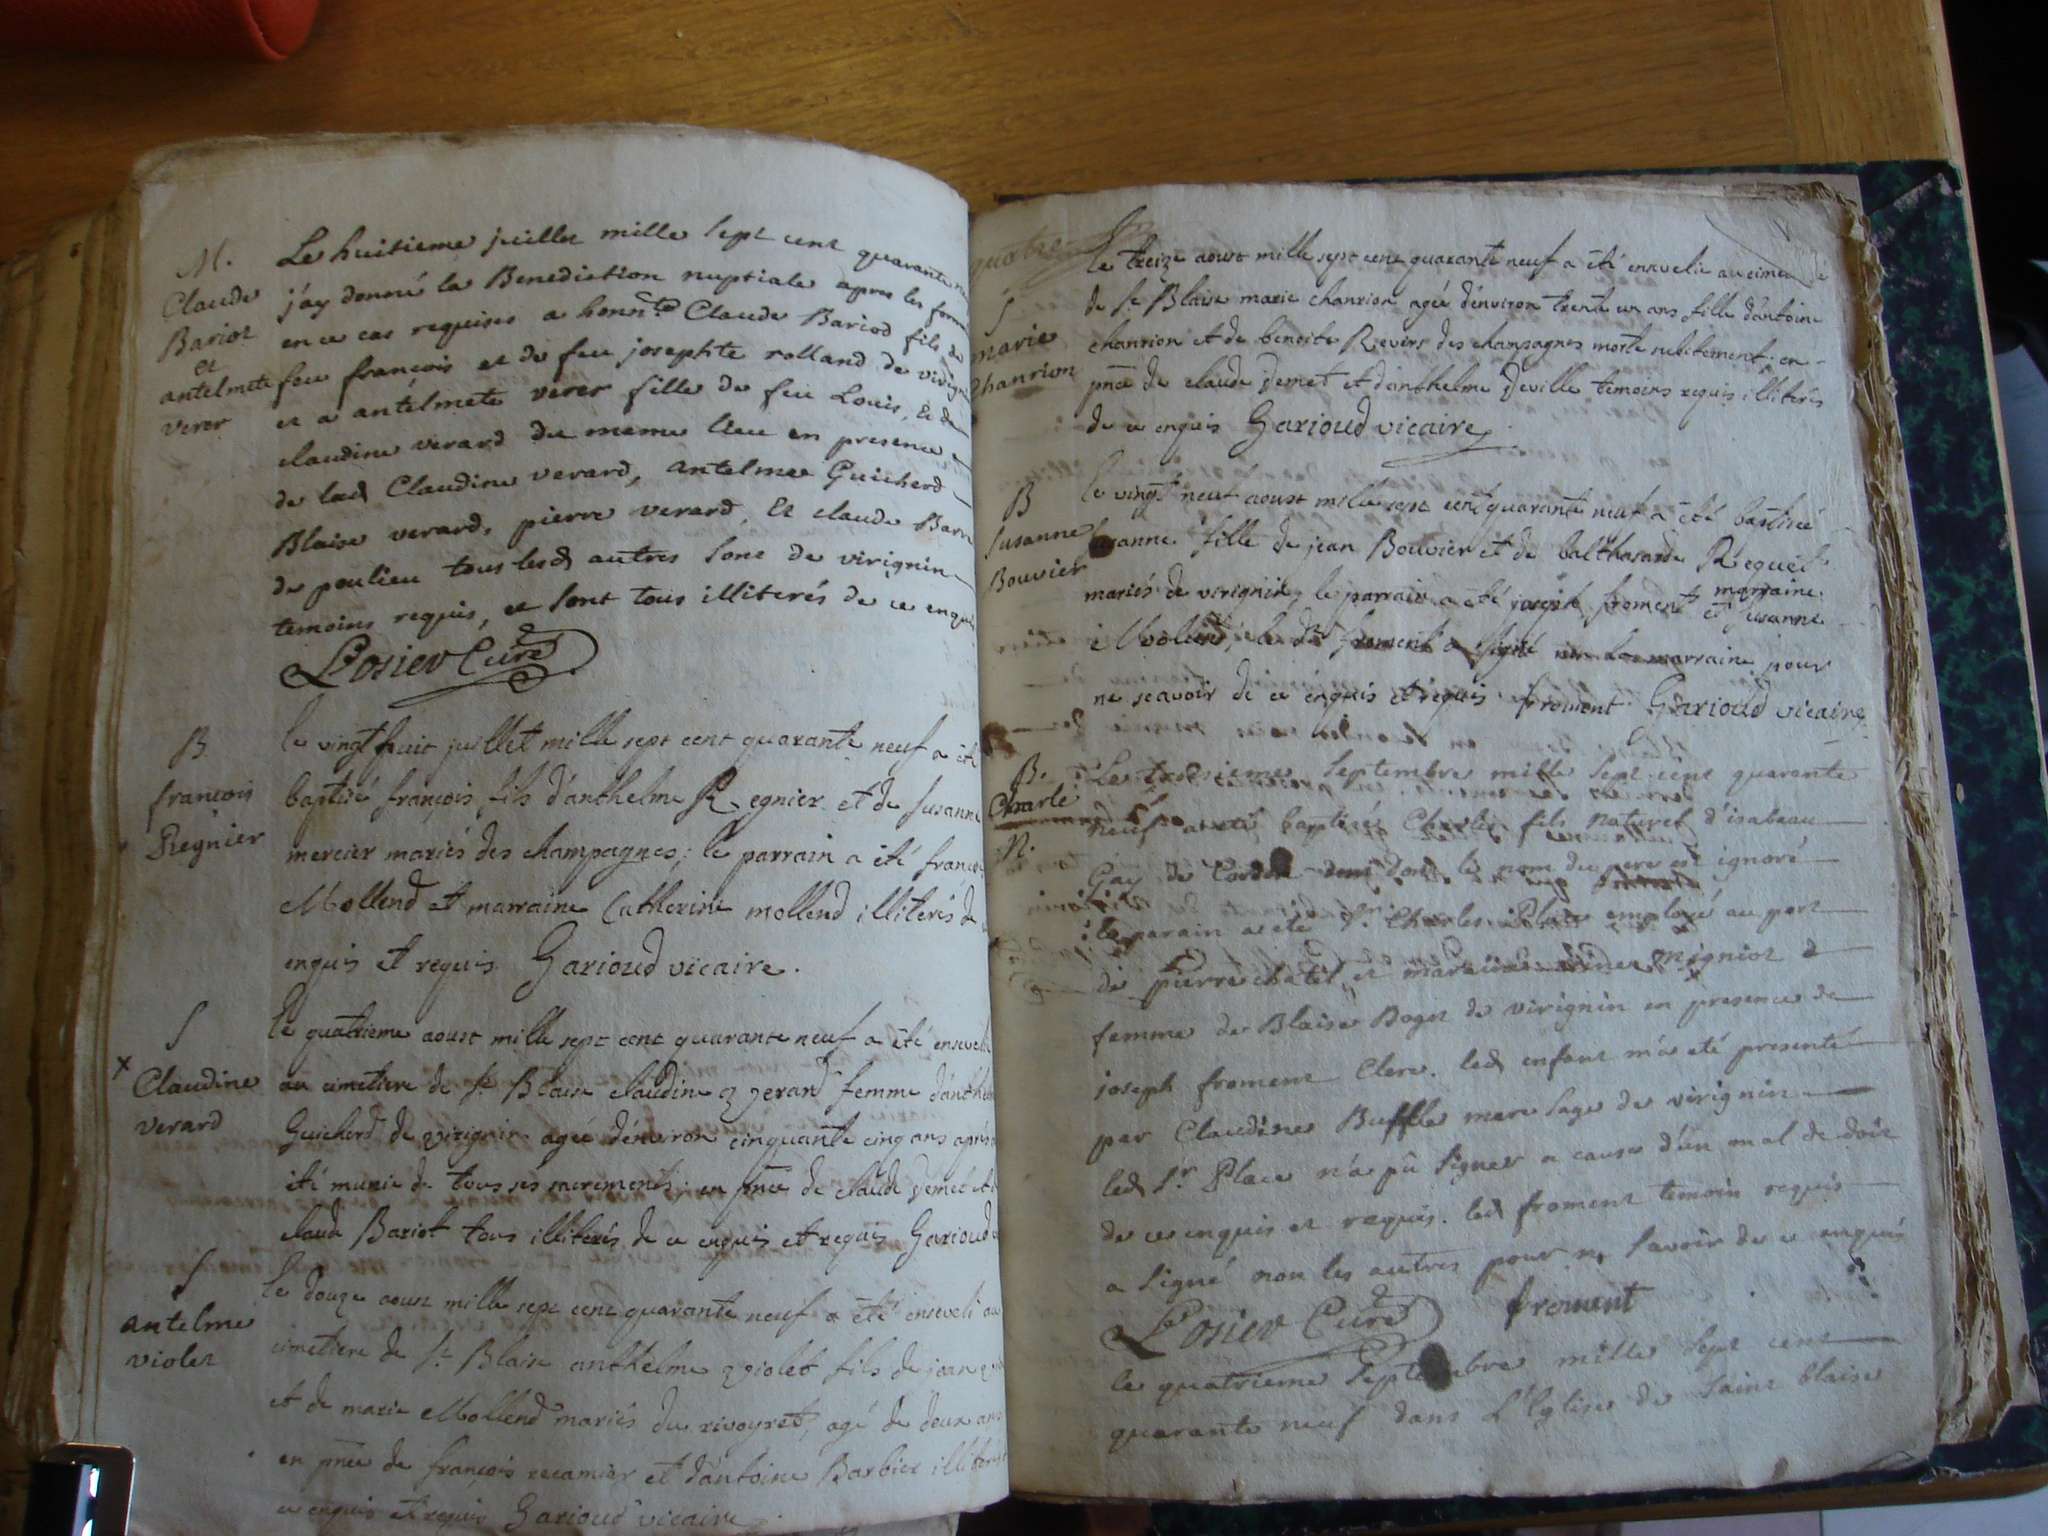 M.
Claude
Bariot
et
antelmete
verer
Le huitieme juillet mille sept cent quarante
j'ay donné la Benediction nuptiale apres les
en ce cas requises a honnte Claude Bariod fils de
feu françois et de feu josephte rolland de
et a antelmete verer fille de feu Louis, et de
claudine verard du meme lieu en presence
de lad Claudine verard, antelme Guicherd
Blaise verard, pierre verard, et claude
de peulieu tous lesd autres sont de virignin
temoins requis, et sont tous illiterés de ce enquis
Posier Curé
B
françois
Regnier
le vingt huit juillet mille sept cent quarante neuf a été
baptisé françois fils d'anthelme Regnier et de susanne
mercier mariés des champagnes; le parrain a été
Mollend et marraine Catherine mollend illiterés de
enquis et requis Garioud vicaire.
S
x
Claudine
verard
le quatrieme aoust mille sept cent quarante neuf a été
au cimetiere de st Blaise claudine verard femme
Guicherd de virignin agée d'environ cinquante cinq ans après
été munie de tous ses sacrements; en pnce de claude Demet et
claude Bariot tous illiterés de ce enquis et requis Garioud
S
antelme
violet
le douze aoust mille sept cent quarante neuf a été enseveli au
cimetiere de st Blaise anthelme violet fils de jean
et de marie Mollend mariés du rivoyret, agé de deux ans
en pnce de françois recamier et d'antoine Barbier
ce enquis et requis Garioud vicaire
quatre
S
marie
Chanrion
le treize aoust mille sept cent quarante neuf a été ensvelie au
de st Blaise marie chanrion agée d'environ trente un ans fille d'antoine
chanrion et de benoite Revirs des champagnes morte subitement: en
pnce de claude Demet et d'anthelme Deville temoins requis illiterés
de ce enquis Garioud vicaire
B
Susanne
Bouvier
le vingt neuf aoust mille sept cent quarante neuf a été
susanne fille de jean Bouvier et de balthasarde
mariés de virignin, le parrain a été joseph froment et marraine susanne
Mollend; le dt froment a signé non la marraine pour
ne scavoir de ce enquis et requis. froment Garioud vicaire
B.
Charle
N.
Le troisieme septembre mille sept cent quarante
neuf a eté baptisé Charles fils naturel d'isabeau
Gay de Cordon dont le nom du pere est ignoré
le parain a eté sr Charles Place employé au port
de pierrechatel, et maraine migniot
femme de Blaise Boget de virignin en presence de
joseph froment Clerc. led enfant m'a eté presenté
par Claudine Buffle mere sage de virignin
led sr Place n'a pû signer a cause d'un mal de doit
de ce enquis et requis. led froment temoin requis
a signé non les autres pour ne savoir de ce enquis
Posier Curé froment
le quatrieme septembre mille sept cent
quarante neuf dans L'Eglise de saint blaise